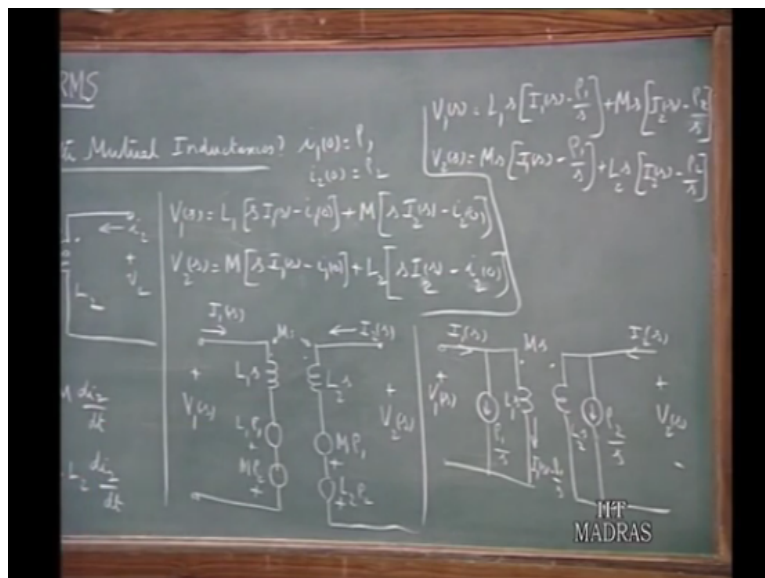 RMS
Mutual Inductances? i₁(0) = ρ₁
i₂(0) = ρ₂
V₁(s) = L₁ [s I₁(s) - i₁(0)] + M [s I₂(s) - i₂(0)]
V₂(s) = M [s I₁(s) - i₁(0)] + L₂ [s I₂(s) - i₂(0)]
V₁(s) = L₁s [I₁(s) - ρ₁/s] + Ms [I₂(s) - ρ₂/s]
V₂(s) = Ms [I₁(s) - ρ₁/s] + L₂s [I₂(s) - ρ₂/s]
← i₂
+
V₂
-
L₂
di₂/dt
L₂ di₂/dt
I₁(s)
I₂(s)
L₁s
L₂s
+
V₁(s)
-
+
V₂(s)
-
L₁ρ₁
+
Mρ₂
+
Mρ₁
+
L₂ρ₂
+
I₁(s)
Ms
I₂(s)
+
V₁(s)
ρ₁/s
L₁s
L₂s
ρ₂/s
+
V₂(s)
-
IIT
MADRAS